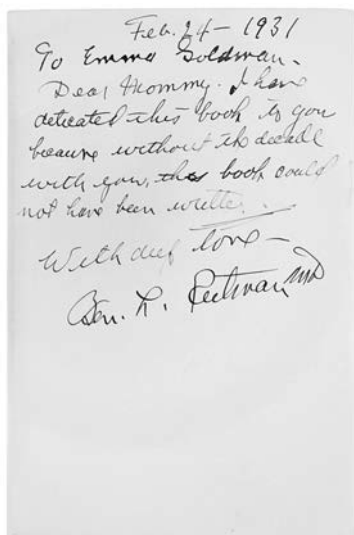 Feb. 24 - 1931
To Emma Goldman -
Dear Mommy. I have
deticated this book to you
because without the decade
with you, this book could
not have been written.
With deep love -
Ben. L. Reitman MD